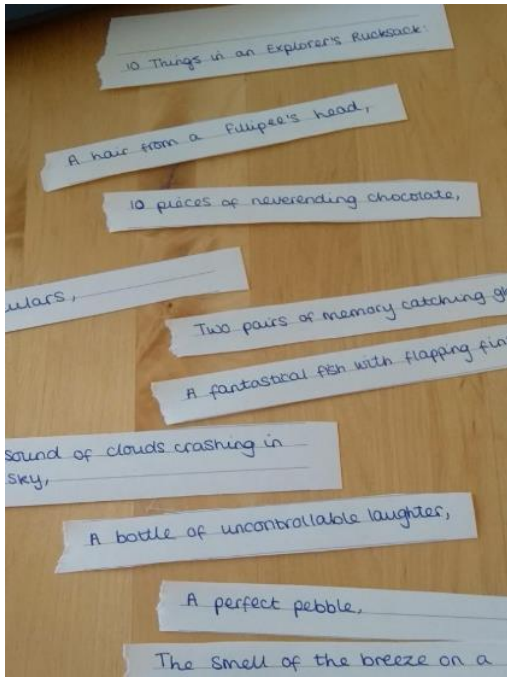 10 Things in an Explorer's Rucksack:
A hair from a Fillipee's head,
10 pieces of neverending chocolate,
ulars,
Two pairs of memory catching gl
A fantastical fish with flapping fin
sound of clouds crashing in
sky,
A bottle of uncontrollable laughter,
A perfect pebble,
The smell of the breeze on a